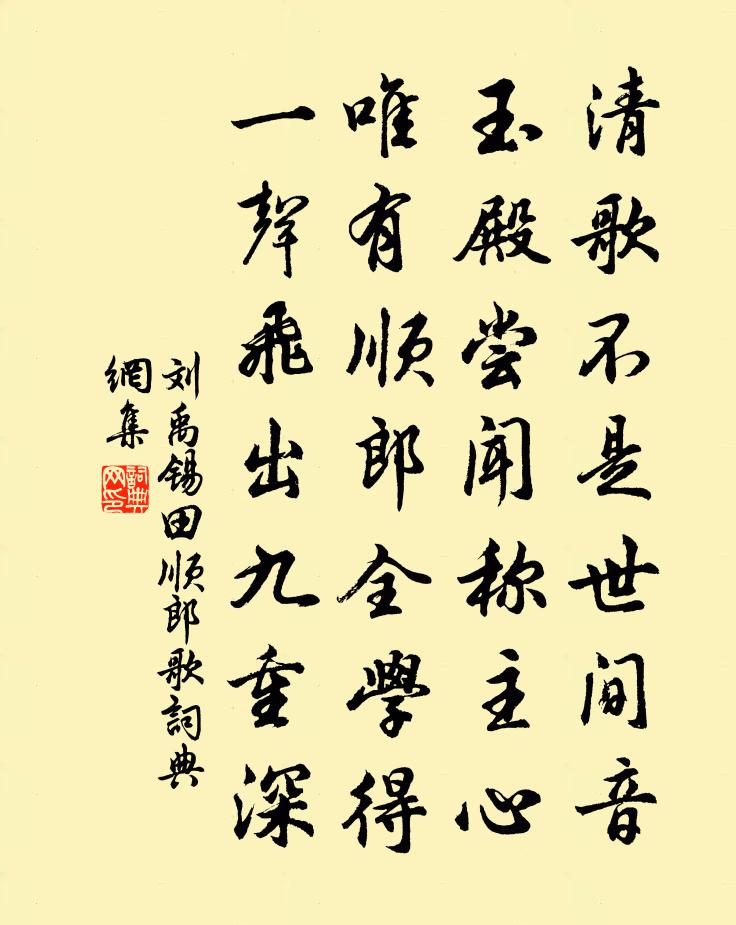 清歌不是世间音
玉殿尝闻称主心
唯有顺郎全学得
一声飞出九重深
刘禹锡田顺郎歌詞典
網集
詞典
网印